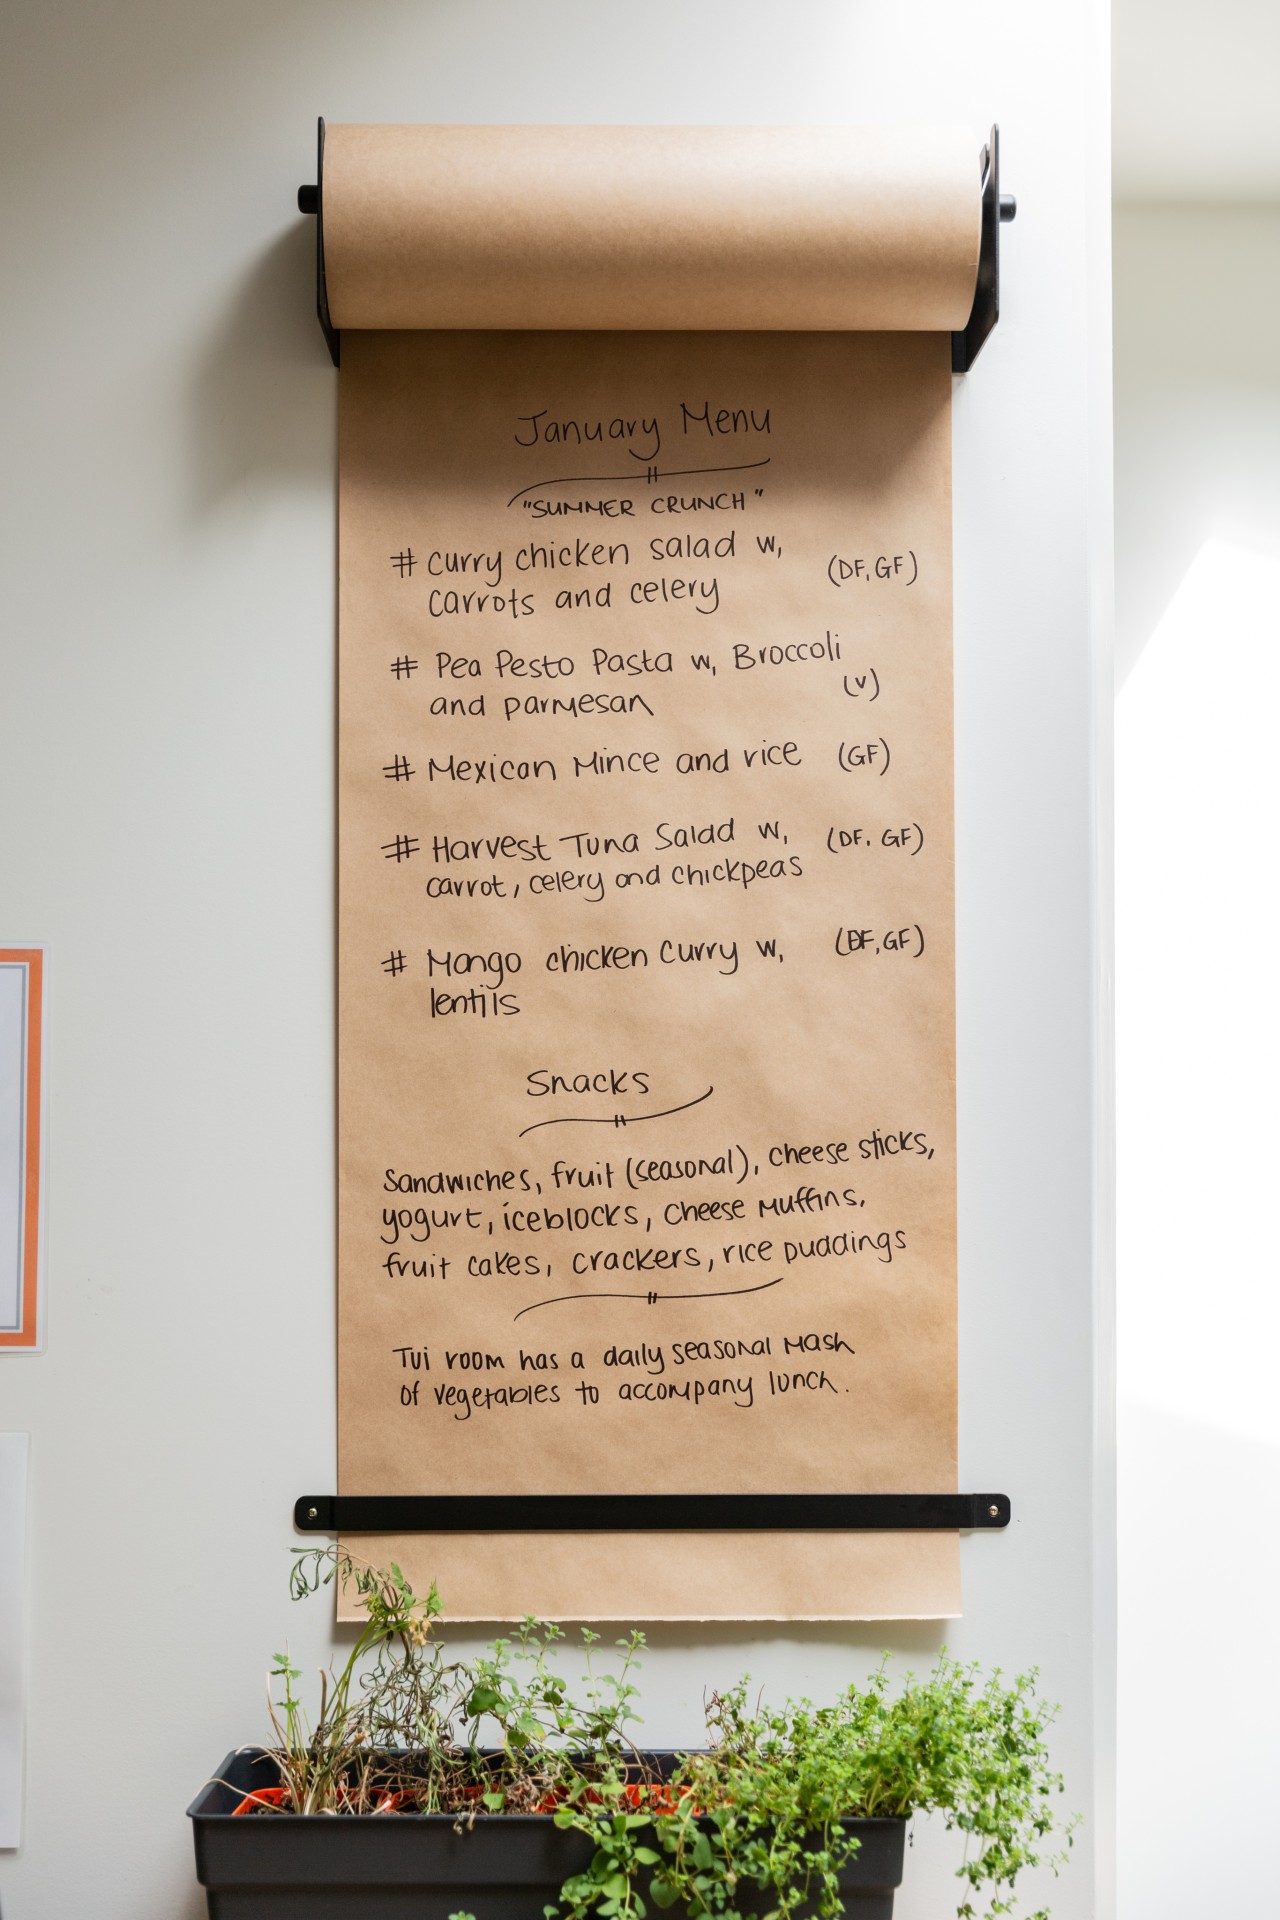 January Menu
"SUMMER CRUNCH"
# curry chicken salad w, (DF, GF)
carrots and celery
# Pea Pesto Pasta w, Broccoli
and parmesan (V)
# Mexican Mince and rice (GF)
# Harvest Tuna Salad w, (DF. GF)
carrot, celery and chickpeas
# Mango chicken curry w, (DF, GF)
lentils
Snacks
Sandwiches, fruit (seasonal), cheese sticks,
yogurt, iceblocks, cheese muffins,
fruit cakes, crackers, rice puddings
Tui room has a daily seasonal mash
of vegetables to accompany lunch.